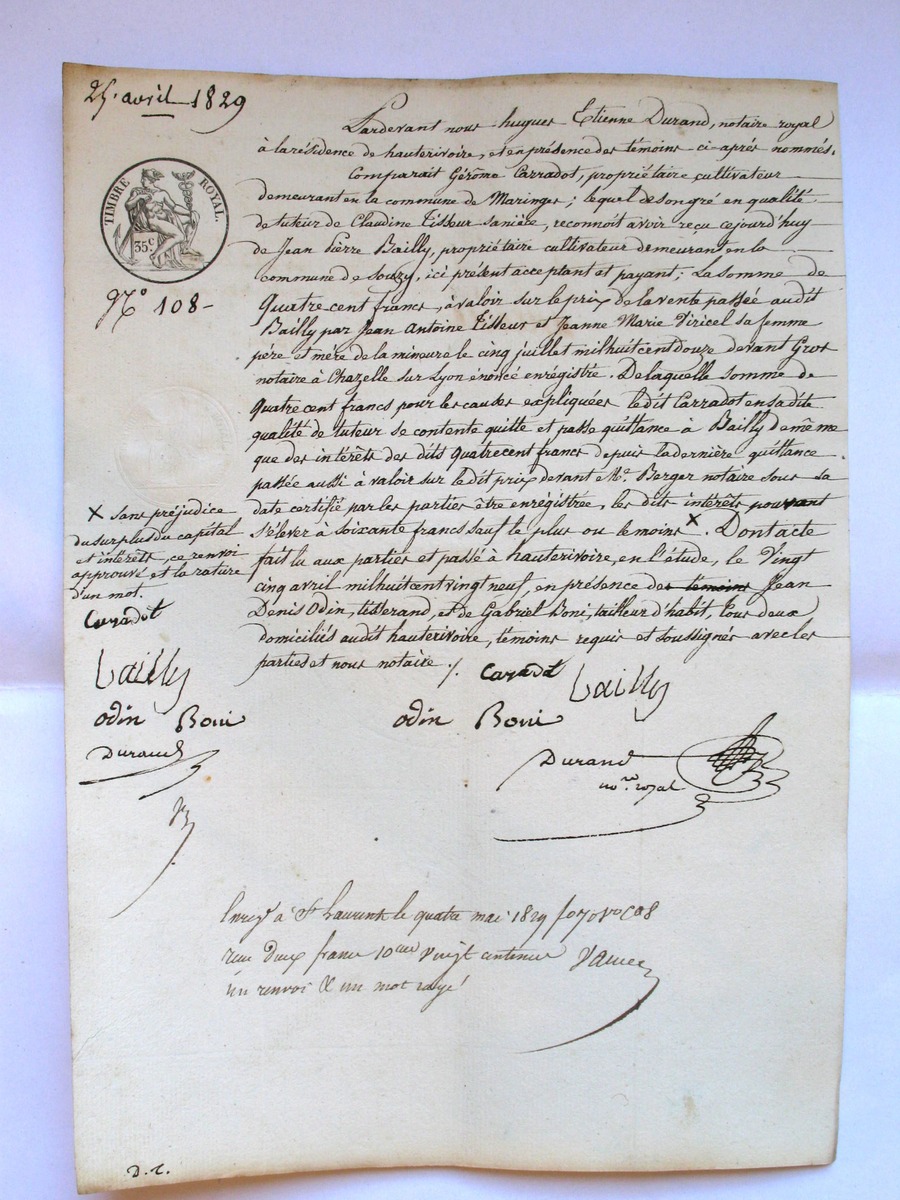 25. avril 1829
TIMBRE ROYAL.
35 c
N° 108-
Pardevant nous hugues Etienne Durand, notaire royal
à la résidence de hauterivoire, et en présence des témoins ci-après nommés.
Comparait Gérome Carradot, propriétaire cultivateur
demeurant en la commune de Maringes; lequel de son gré en qualité
de tuteur de Claudine Tisseur sanière, reconnoît avoir reçu cejourd'huy
de Jean Pierre Bailly, propriétaire cultivateur demeurant en la
commune de Souzy, ici présent acceptant et payant; La somme de
Quatre cent francs, à valoir sur le prix de la vente passée audit
Bailly par Jean Antoine Tisseur et Jeanne Marie Viricel sa femme
père et mère de la mineure le cinq juillet mil huit cent douze devant Grot
notaire à Chazelle sur Lyon énoncé enrégistré. De laquelle somme de
Quatre cent francs pour les causes expliquées ledit Carradot en sa dite
qualité de tuteur se contente quitte et passe quittance à Bailly de même
que des intérêts des dits Quatre cent francs depuis la dernière quittance
passée aussi à valoir sur le dit prix devant Me. Berger notaire sous sa
date certifié par les parties être enrégistrée, les dits intérêts pouvant
s'élever à soixante francs sauf le plus ou le moins X. Dont acte
fait lu aux parties et passé à hauterivoire, en l'étude, le Vingt
cinq avril mil huit cent vingt neuf, en présence de témoins Jean
Denis Odin, tisserand, et de Gabriel Boni, tailleur d'habit, tous deux
domiciliés audit hauterivoire, témoins requis et soussignés avec les
parties et nous notaire ./.
X sans préjudice
du surplus du capital
et intérêts, ce renvoi
approuvé et la rature
d'un mot.
Caradot
Bailly
odin Boni
Durand
Caradot Bailly
odin Boni
Durand
no.re royal
Enregé à St Laurent le quatre mai 1829 fo 70 vo C 8
reçu deux francs 10me vingt centimes
un renvoi & un mot rayé
D. T.